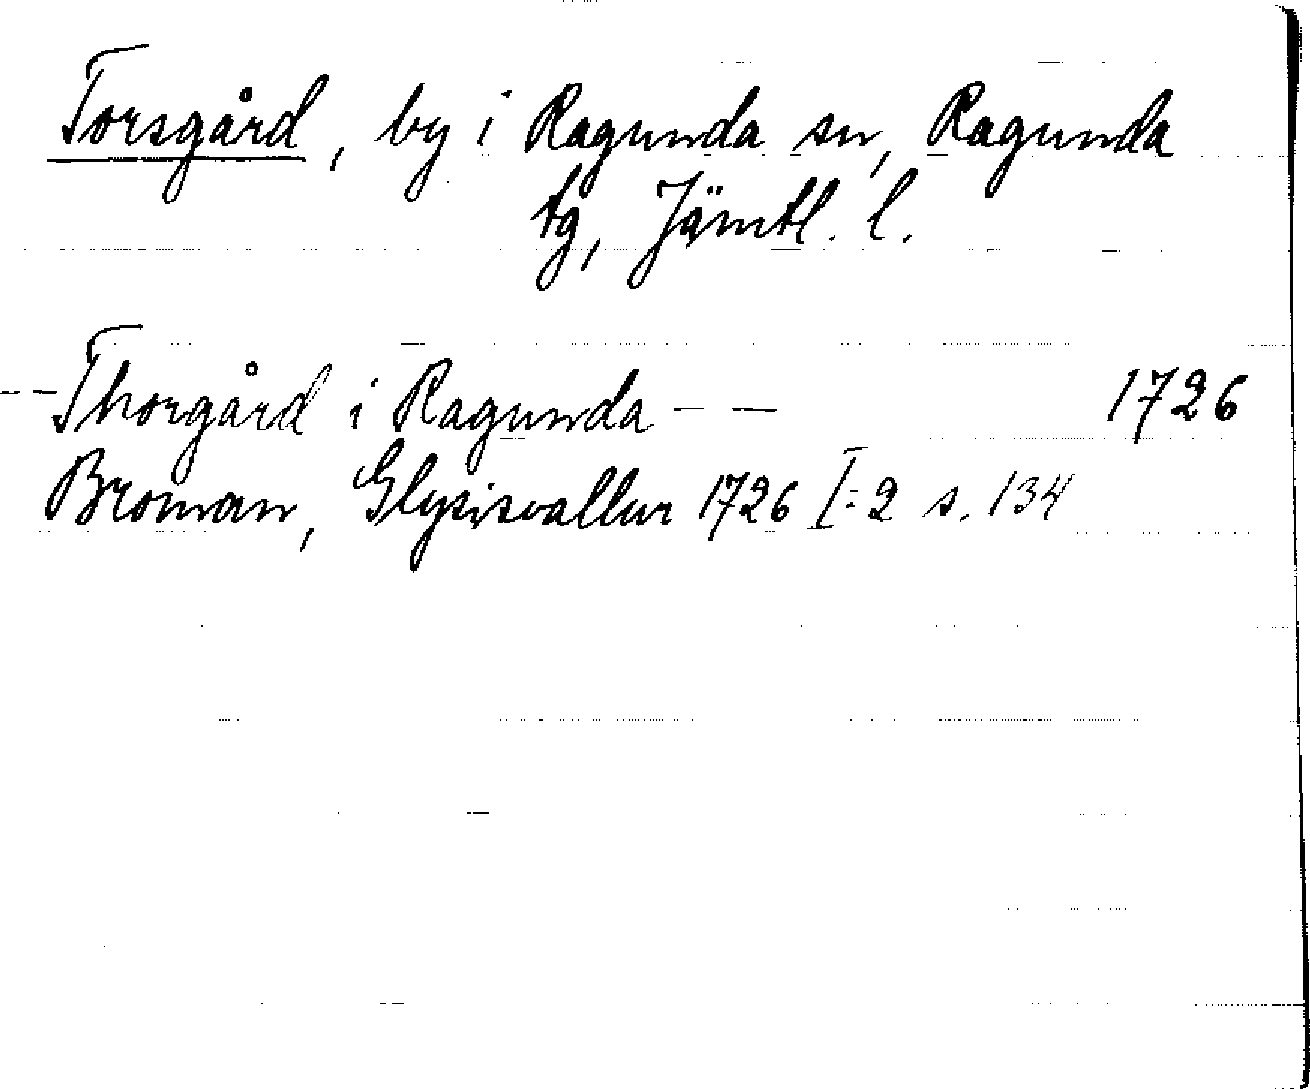 Torsgård, by i Ragunda sn, Ragunda
tg, Jämtl. l.
-- Thorgård i Ragunda -- 1726
Broman, Glysisvallur 1726 I:2 s. 134